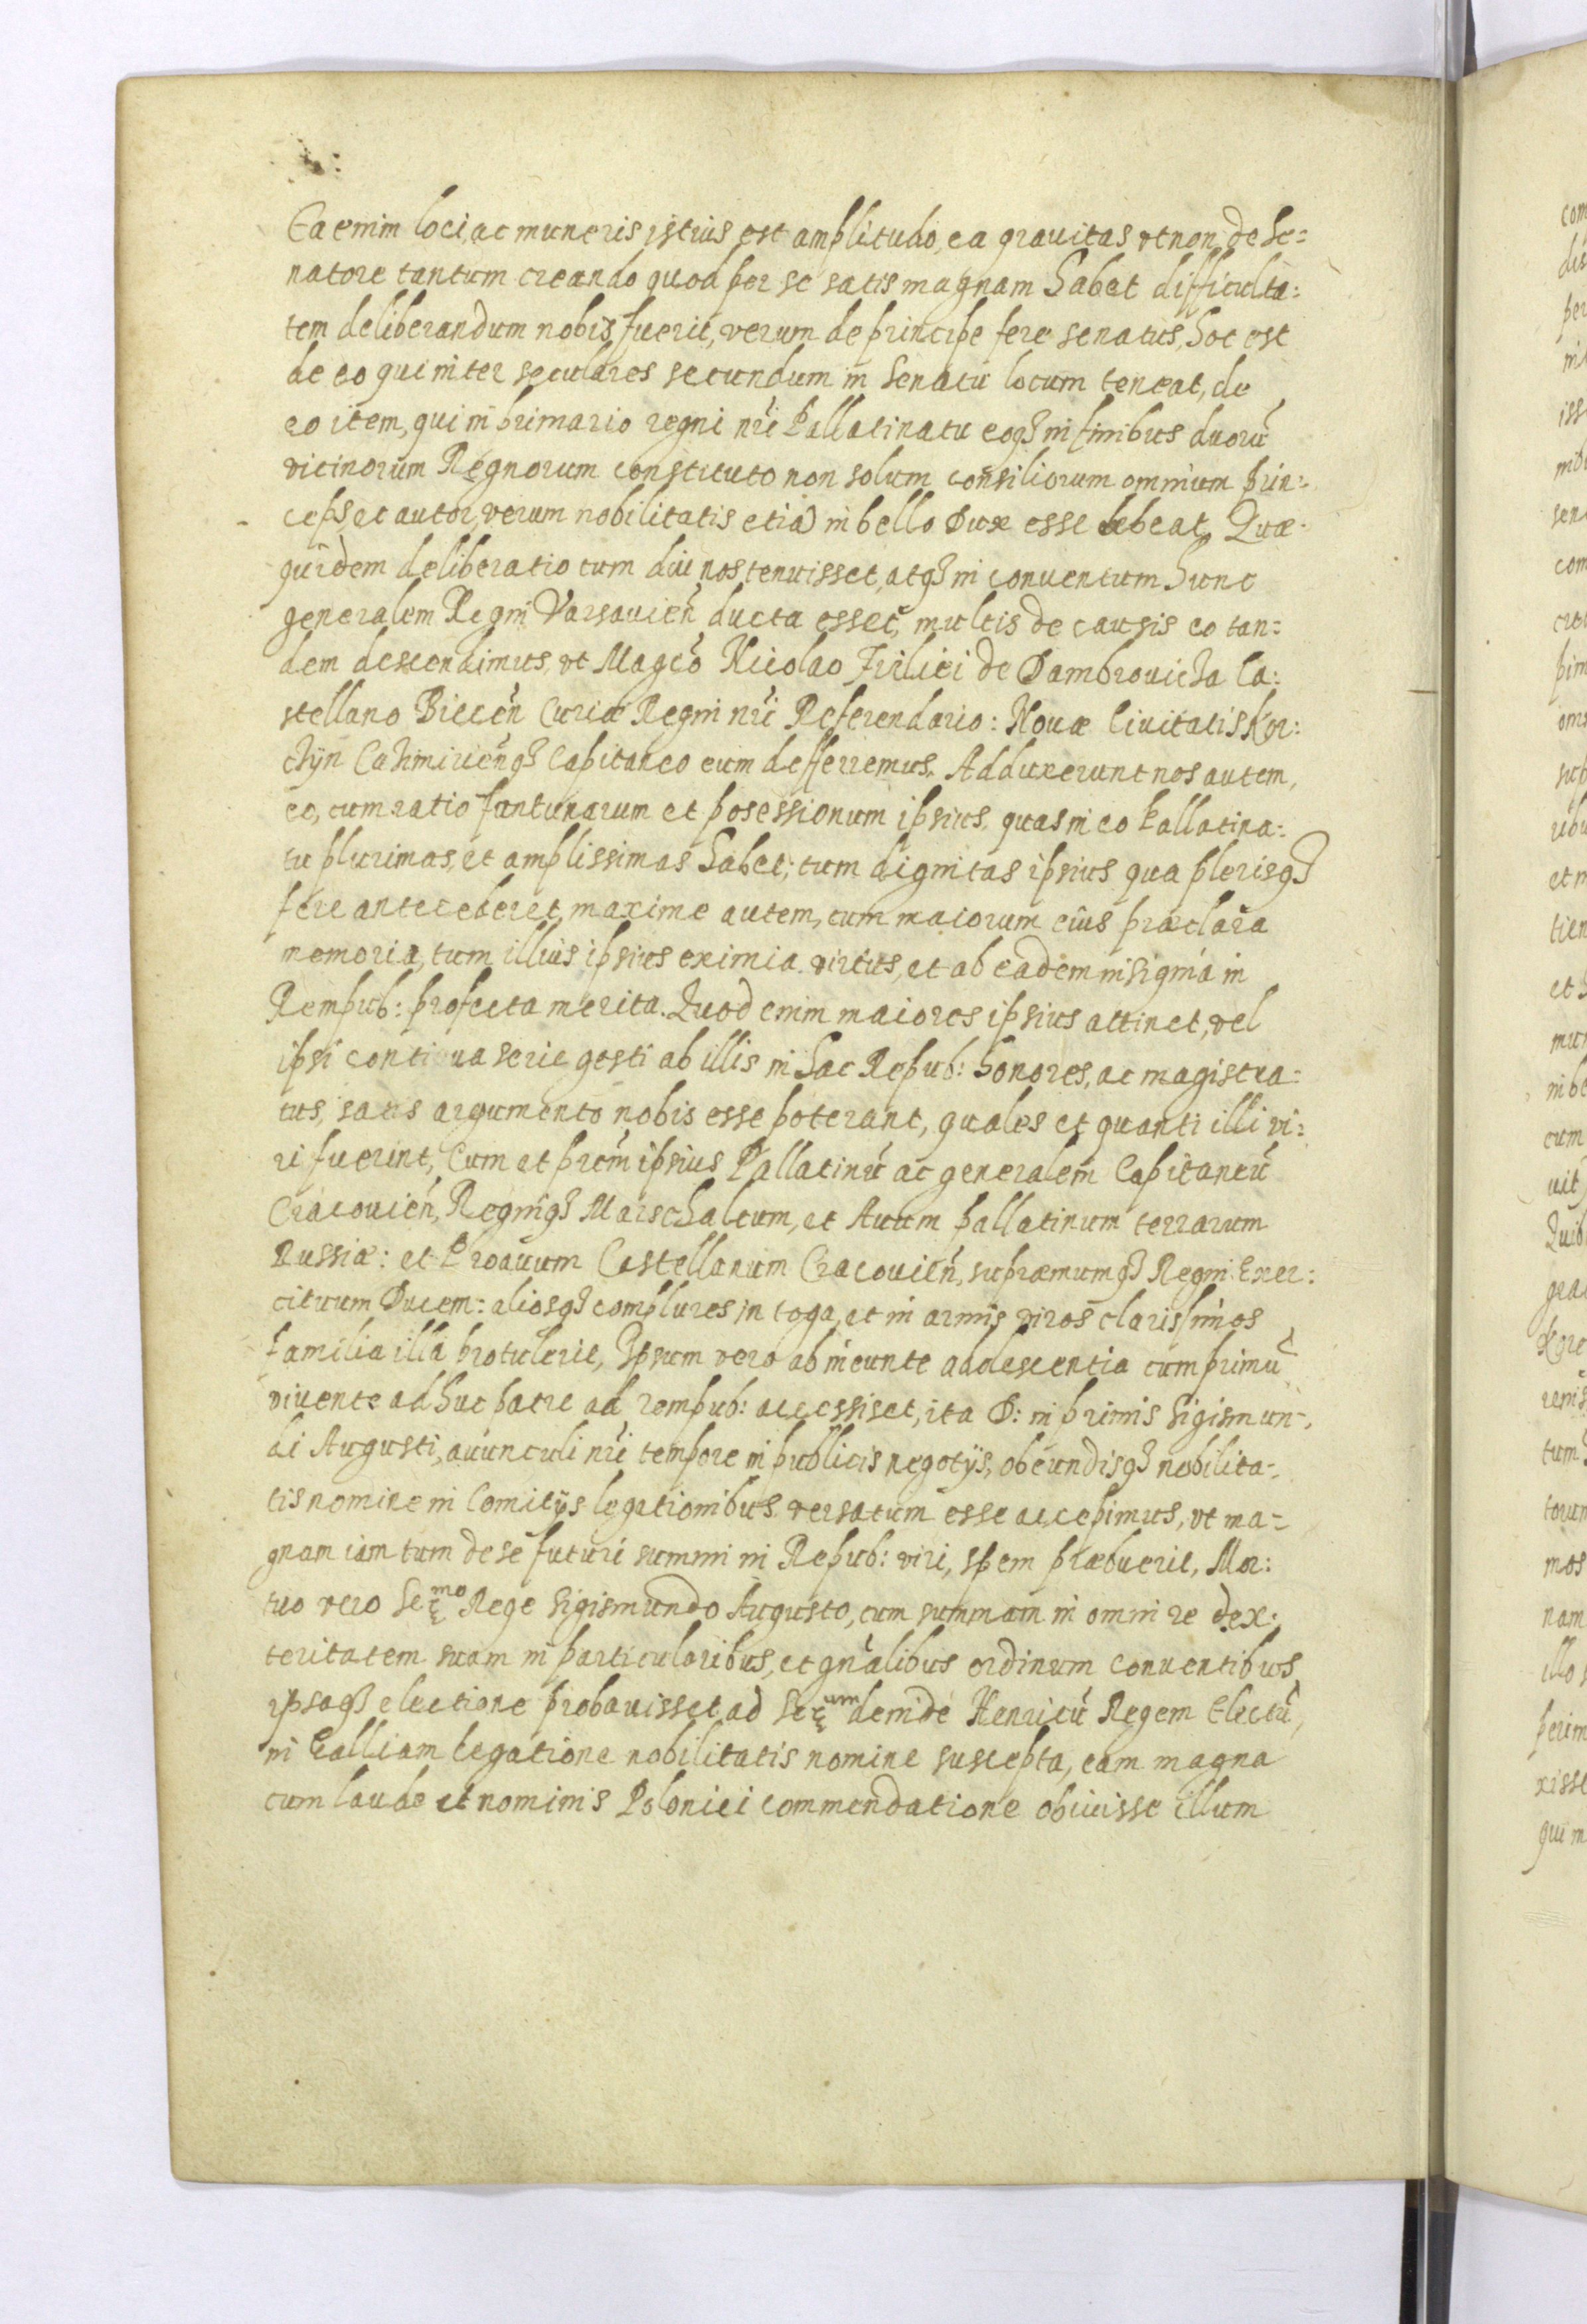 Ea enim loci, ac muneris istius est amplitudo, ea grauitas vt non de Se=
natore tantum creando quod per se satis magnam habet difficulta:
tem deliberandum nobis fuerit, verum de principe fere senatus, hoc est
de eo qui inter seculares secundum in Senatu locum teneat, de
eo item, qui in primario regni nri̅ Pallatinatu eoq3 in finibus duoru̅
vicinorum Regnorum constituto non solum consiliorum omnium prin:
ceps et autor, verum nobilitatis etia̅ in bello Dux esse debeat. Quæ
quidem deliberatio cum diu nos tenuisset, atq3 in conuentum hunc
generalem Regni Varsauien̅ ducta esset, multis de causis eo tan:
dem descendimus, vt Magco̅ Nicolao Firliei de Dambrouicha Ca:
stellano Biecen̅ Curiæ Regni nri̅ Referendario: Nouæ Ciuitatis Kor:
chÿn Cazimirienq̅3 Capitaneo eum defferremus. Adduxerunt nos autem,
eo, cum ratio funtunarum et posessionum ipsius, quas in eo Pallatina:
tu plurimas, et amplissimas habet; tum dignitas ipsius qua plerisq3
fere antecederet, maxime autem, cum maiorum eius præclara
memoria, tum illius ipsius eximia virtus, et ab eadem insignia in
Rempub: profecta merita. Quod enim maiores ipsius attinet, vel
ipsi continua serie gesti ab illis in hac Repub: honores, ac magistra=
tus, satis argumento nobis esse poterant, quales et quanti illi vi:
ri fuerint, Cum et prem̅ ipsius Pallatinu̅ ac generalem Capitaneu̅
Cracouien̅, Regniq3 Marschalcum, et Auum pallatinum terrarum
Russiæ: et Proauum Castellanum Cracouien̅, supræmumq3 Regni Exer:
cituum Ducem: aliosq3 complures in toga, et in armis viros clarissimos
familia illa protulerit, Ipsum vero ab ineunte adolescentia cum primu̅
viuente adhuc patre ad rempub: accessisset, ita D: in primis Sigismun=
di Augusti, auunculi nri̅ tempore in publicis negotÿs, obeundisq3 nobilita=
tis nomine in Comitÿs legationibus versatum esse accepimus, vt ma=
gnam iam tum de se futuri summi in Repub: viri, spem præbuerit, Mor:
tuo vero Se̅r̅mo Rege Sigismundo Augusto, cum summam in omni re dex:
teritatem suam in particularibus, et gn̅alibus ordinum conuentibus
ipsaq3 electione probauisset ad Se̅r̅um deinde Henricu̅ Regem Electu̅,
in Galliam legatione nobilitatis nomine suscepta, eam magna
cum laude et nominis Polonici commendatione obiuisse illum